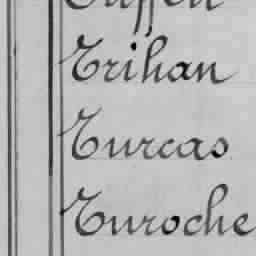 Trihan
Turcas
Turoche